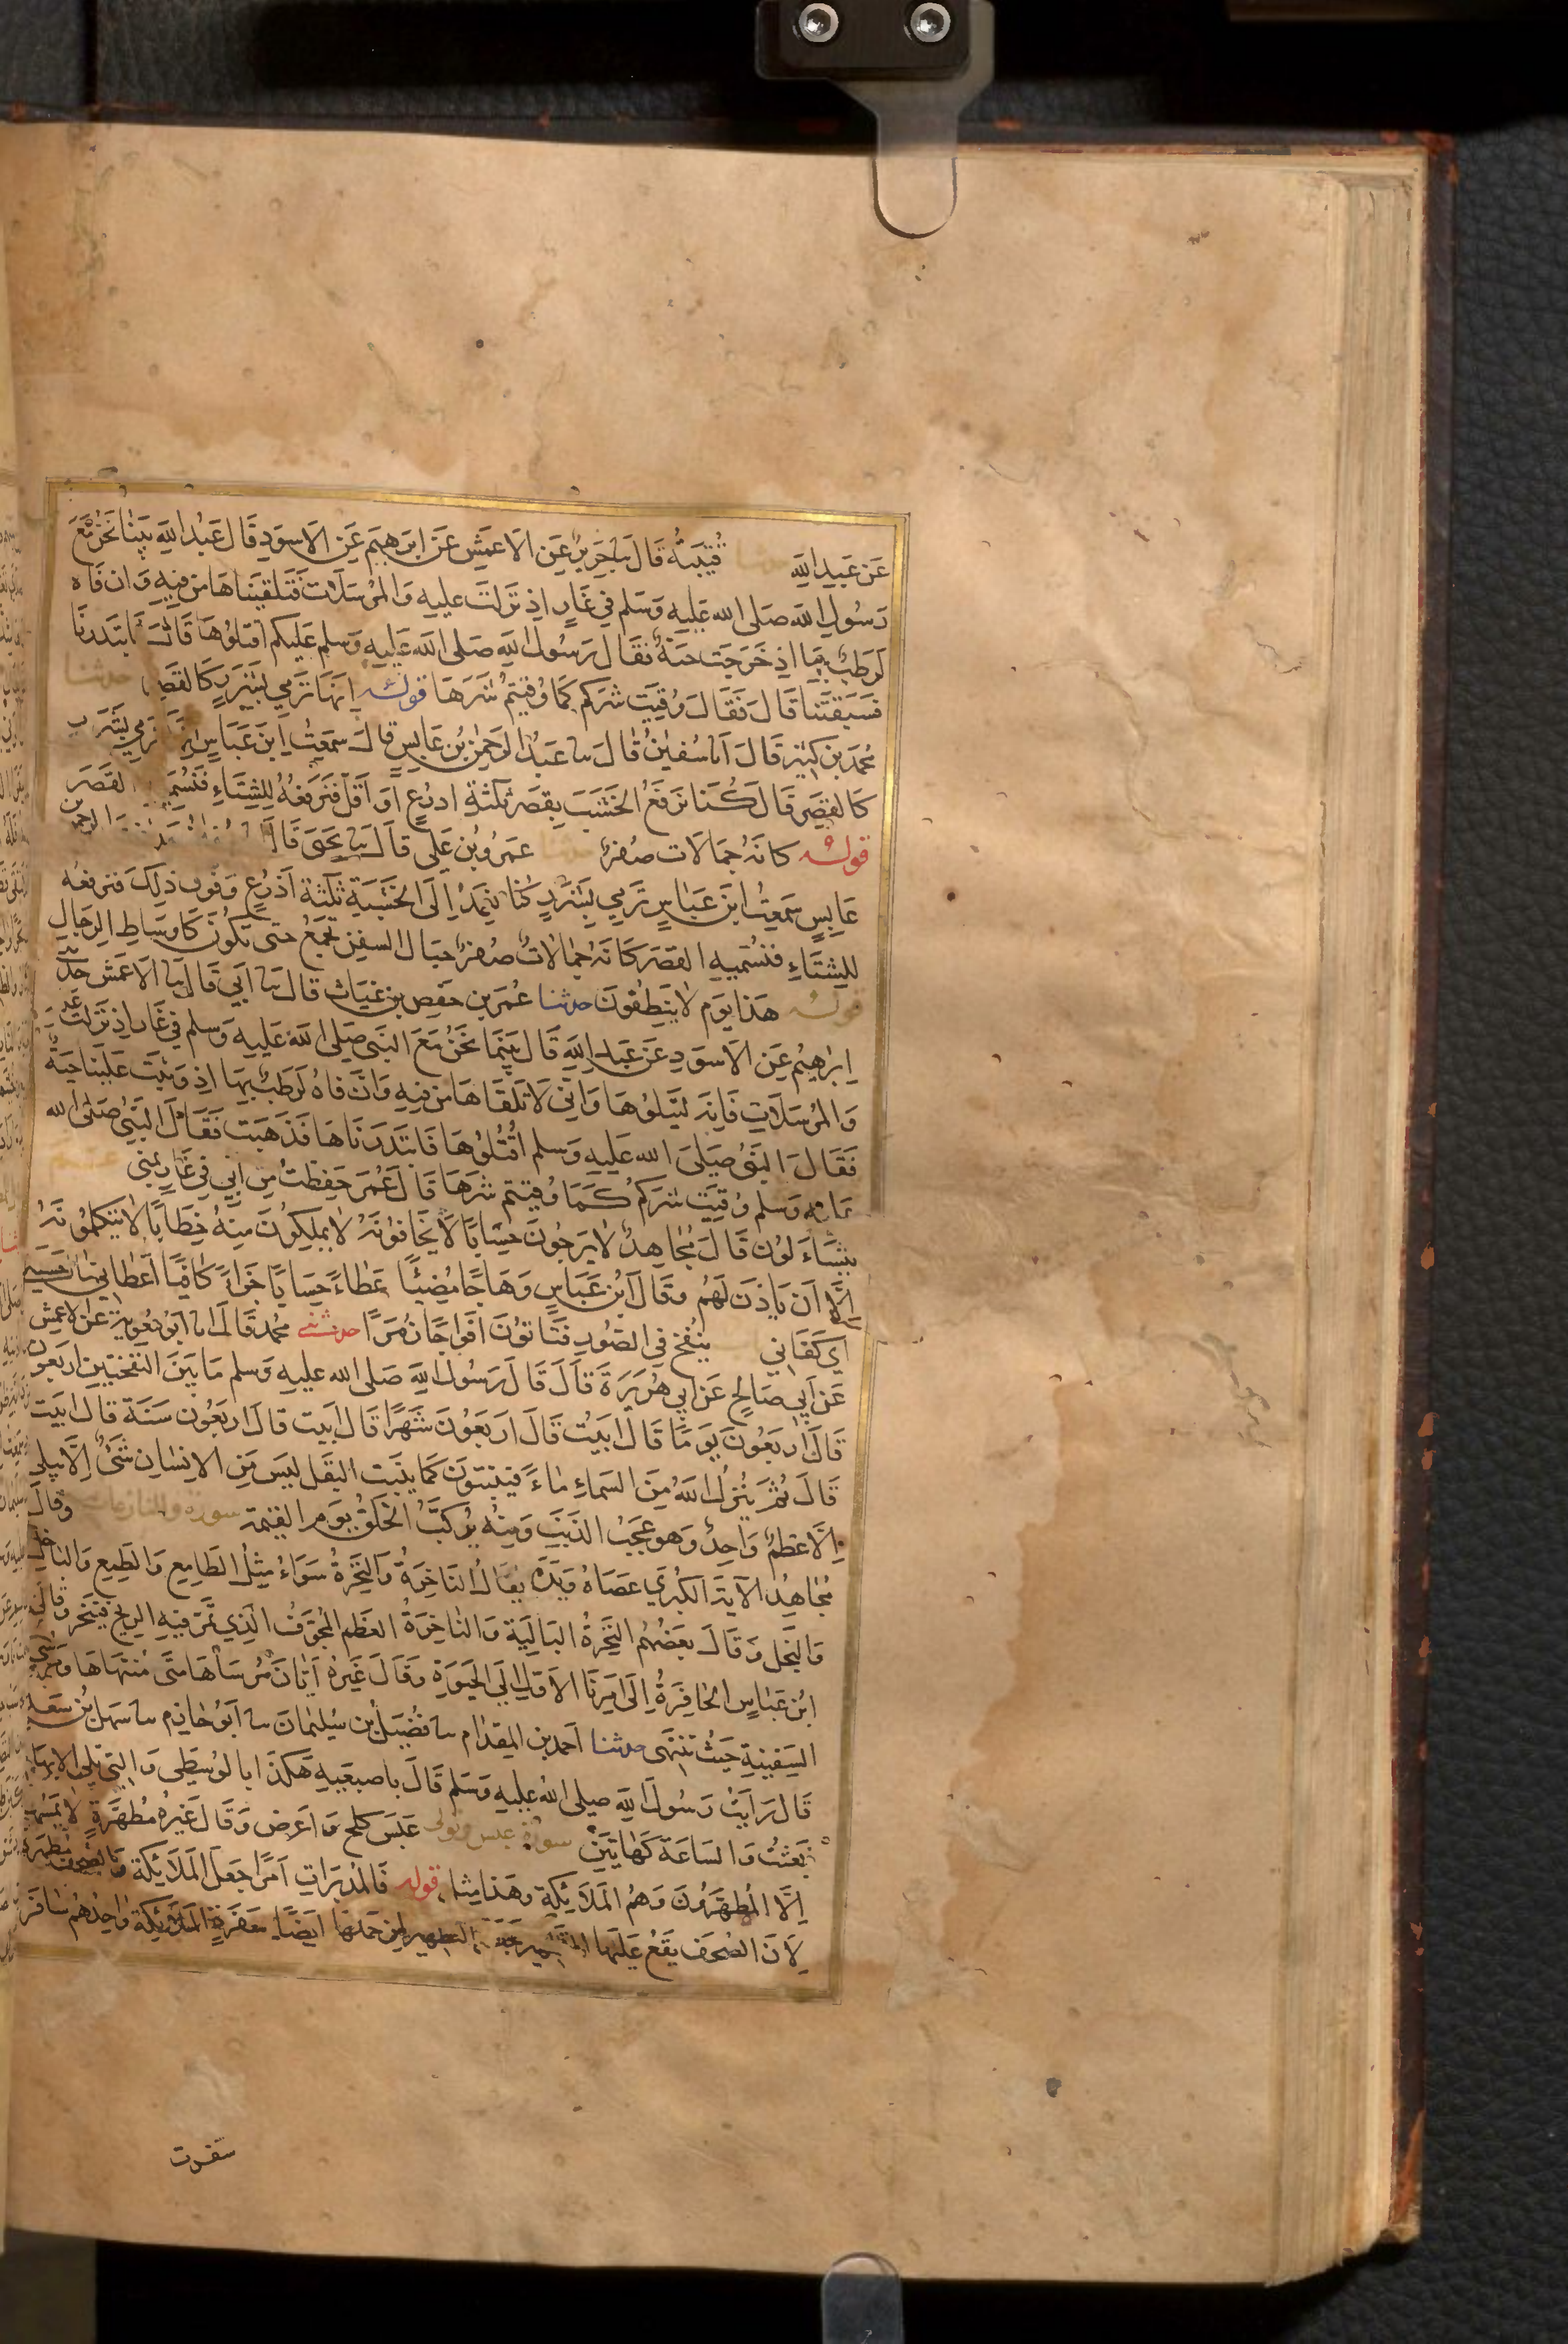 عَن عَبدِ اللهِ حدثنا قُتَيبَةُ قَالَ ثنا جَرِيرٌ عَنِ الاَعمَشِ عَن اِبرَهِيمَ عَنِ الاَسوَدِ قَالَ عَبدُ اللهِ بَينَا نَحنُ مَعَ
رَسُولِ اللهِ صَلى الله عَلَيهِ وَسَلم فِي غَارٍ اِذ نَزَلَت عَلَيهِ وَالمُرسَلَات فَتَلَقَّينَاهَا مِن فِيهِ وَان فَاه
لَرَطبٌ بِهَا اِذ خَرَجَت حَيَّةٌ فَقَالَ رَسُولُ اللهِ صَلى الله عَلَيهِ وَسلم عَلَيكُم اقتُلُوهَا قَالَ فَابتَدَرنَا
فَسَبَقَتنَا قَالَ فَقَالَ وُقِيَت شَرَّكُم كَمَا وُقِيتُم شَرَّهَا قوله اِنَّهَا تَرمِي بِشَرَرٍ كَالقَصرِ حدثنا
مُحَمَّد بن كَثِير قَالَ انا سُفيٰنُ قَالَ ثنا عَبدُ الرَحمٰنِ بنُ عَابِسٍ قَالَ سَمِعتُ اِبنَ عَبَاسٍ اِنَّهَا تَرمِي بِشَرَرٍ
كَالقَصرِ قَالَ كُنَا نَرفَعُ الخَشَبَ بِقَصَرٍ ثَلٰثَةِ اذرُعٍ اَو اَقَلَّ فَنَرفَعُهُ لِلشِتَاءِ فَنُسَمِّيهِ القَصَرَ
قوله كَانَهُ جِمَالَات صُفرٌ حدثنا عَمرُو بنُ عَلِي قَالَ ثنا يَحيَى قَالَ الرحمن بن
عَابِسٍ سَمِعتُ ابنَ عَبَاسٍ تَرمِي بِشَرَرٍ كُنَا نَعمِدُ اِلَى الخَشَبَةِ ثَلٰثَةَ اَذرُعٍ وَفَوقَ ذَلِكَ فَنَرفَعُه
لِلشِتَاءِ فَنُسَمِّيهِ القَصَرَ كَانَهُ جِمَالَاتٌ صُفرٌ حِبَالُ السفِنِ تُجمَعُ حَتى يَكُونَ كَاَوسَاطِ الرِجَالِ
قوله هَذَا يَوم لَا يَنطِقُونَ حدثنا عُمَر بن حَفصِ بنِ غِيَاث قَالَ ثنا اَبِي قَالَ ثنا الاَعمَش حَدَّثَنِي
اِبرٰهِيمُ عَنِ الاَسوَدِ عَن عَبدِ اللهِ قَالَ بَينَمَا نَحنُ مَعَ النَبِي صَلى اللهُ عَلَيهِ وَسلم فِي غَارٍ اِذ نَزَلَت عَلَيهِ
وَالمُرسَلَاتِ فَاِنَه لَيَتلُوهَا وَاِنِّي لَاَتَلَقَّاهَا مِن فِيهِ وَانَّ فَاهُ لَرَطبٌ بِهَا اِذ وَثَبَت عَلَينَا حَيَّةٌ
فَقَالَ النَبِيُّ صَلَى الله عَلَيهِ وَسلم اُقتُلُوهَا فَابتَدَرنَاهَا فَذَهَبَت فَقَالَ النَبِيُّ صَلَى الله
عليه وسلم وُقِيَت شَرَّكُم كَمَا وُقِيتُم شَرَّهَا قَالَ عُمَر حَفِظتُ مِن اَبِي فِي غَارٍ بِمِنى عــم
يتَسَاءَلُون قَالَ مُجَاهِدٌ لَا يَرجُونَ حِسَابًا لَا يَخَافُونَهُ لَا يَملِكُونَ مِنهُ خِطَابًا لَا يَتَكَلَّمُونَهُ
اِلَّا اَن يَاذَنَ لَهُم وَقَالَ ابنُ عَبَاسٍ وَهَاجًا مُضِيئًا عَطَاءً حِسَابًا جَزَاءً كَافِيًا اَعطَانِي مَا اَحسَبَنِي
اَي كَفَانِي يُنفَخُ فِي الصُورِ فَتَاتُونَ اَفوَاجًا زُمَرًا حدثني مُحَمد قَالَ انا اَبُو مُعٰوِيَةَ عَنِ الاَعمَش
عَن اَبِي صَالِحٍ عَن اَبِي هُرَيرَةَ قَالَ قَالَ رَسُولُ اللهِ صَلى الله عليه وسلم مَا بَينَ النَفخَتَينِ اَربَعُونَ
قَالَ اَربَعُونَ يَومًا قَالَ ابَيتُ قَالَ اَربَعُونَ شَهرًا قَالَ اَبَيت قَالَ اربَعُونَ سَنَةً قَالَ ابَيت
قَالَ ثُمَّ يُنزِلُ اللهُ مِنَ السَمَاءِ مَاءً فَيَنبُتُونَ كَمَا يَنبُت البَقل لَيسَ مِنَ الاِنسَانِ شَيءٌ اِلَّا يَبلَى
اِلَّا عَظمٌ وَاحِدٌ وَهوَ عَجبُ الذَنَبِ وَمِنهُ يُرَكَّبُ الخَلقُ يَومَ القِيٰمَة سورة والنازعات وَقَالَ
مُجَاهِدُ الاٰيَةَ الكُبرَى عَصَاهُ وَيَدَه يُقَالُ النَاخِرَةُ وَالنَخِرَةُ سَوَاءٌ مِثلُ الطَامِعِ وَالطَمِعِ وَالبَاخِلِ
وَالبَخِل وَقَالَ بَعضُهُم النَخِرَةُ البَالِيَة وَالنَاخِرَةُ العَظم المُجَوَّفُ الَّذِي تَمُرّ فِيهِ الرِيحُ فَيَنخَر وَقَالَ
ابنُ عَبَاسٍ الحَافِرَةُ اِلَى اَمرِنَا الاَوَّلِ اِلَى الحَيٰوةِ وَقَالَ غَيرُه اَيَّانَ مُرسَاهَا مَتَى مُنتَهَاهَا وَمُرسَى
السَفِينَةِ حَيثُ تَنتَهِي حدثنا اَحمَد بن المِقدَام ثنا فُضَيلُ بن سُلَيمَانَ ثنا اَبُو حَازِم ثنا سَهلُ بن سَعدٍ
قَالَ رَاَيتُ رَسُولَ اللهِ صَلى اللهُ عَلَيهِ وَسَلم قَالَ بِاصبَعَيهِ هٰكَذَا بِالوُسطَى وَالَّتِي تَلِي الاِبهَامَ
بُعِثتُ وَالسَاعَة كَهَاتَين سورة عبس وتولى عَبَسَ كَلَحَ وَاَعرَض وَقَالَ غَيرُه مُطَهَّرَةٍ لَا يَمَسُّهَا
اِلَّا المُطَهَّرُونَ وَهُمُ المَلَائِكَة وَهَذَا مِثل قوله فَالمُدَبِّرَاتِ اَمرًا جَعَلَ المَلَائِكَةَ وَالصُحُفَ مُطَهَّرَةً
لِاَنَّ الصُحُفَ يَقَعُ عَلَيهَا التطهير لِمَن حَمَلَهَا اَيضًا سَفَرَةٍ المَلَائِكَة وَاحِدُهُم سَافِر
سفرت